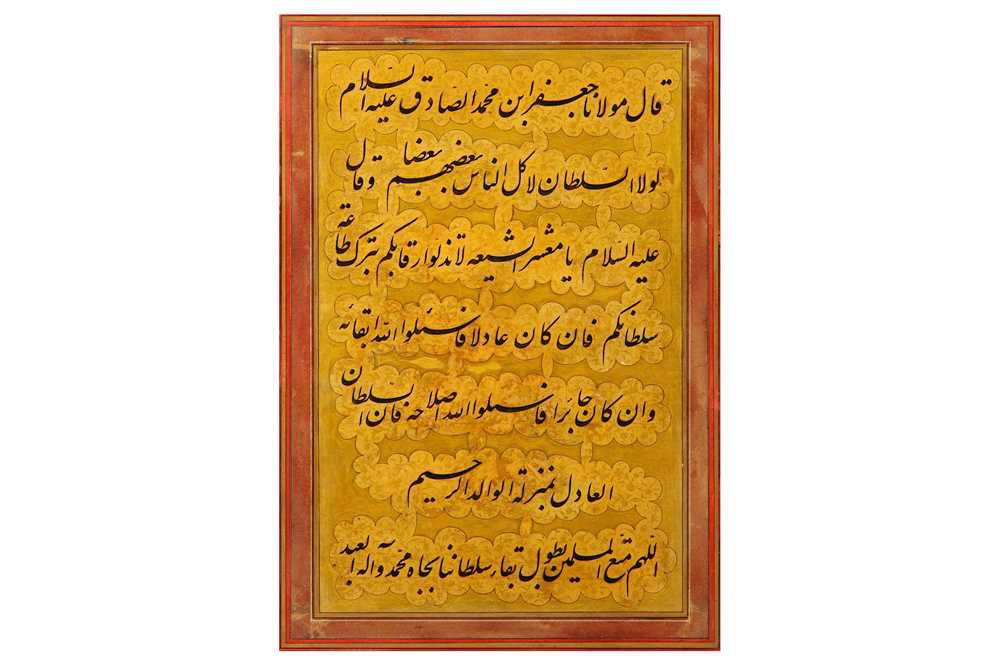 قال مولانا جعفر ابن محمد الصادق علیه السلام
لولا السلطان لاکل الناس بعضهم بعضا وقال
علیه السلام یا معشر الشیعه لا تذلوا رقابکم بترک طاعة
سلطانکم فان کان عادلا فاسئلوا الله ابقائه
وان کان جائرا فاسئلوا الله اصلاحه فان السلطان
العادل بمنزلة الوالد الرحیم
اللهم متع المسلمین بطول بقاء سلطاننا بجاه محمد وآله العبد